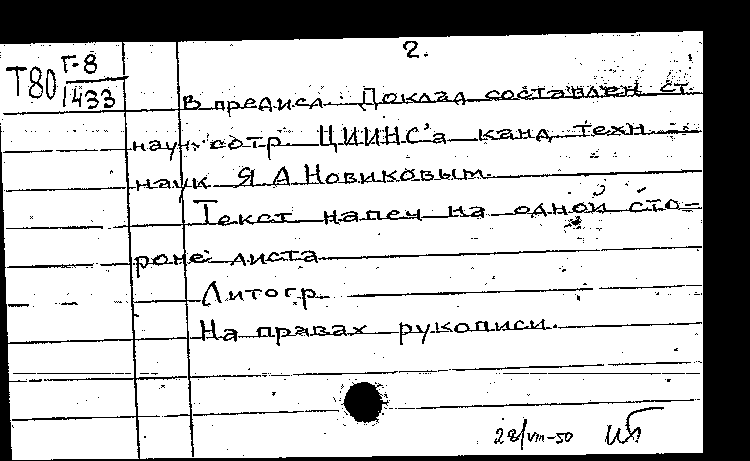 2.
Т80 Г-8
1433
В предисл. Доклад составлен ст.
научн сотр. ЦИИНС'а канд техн
наук Я.А.Новиковым.
Текст напеч на одной сто-
роне листа
Литогр.
На правах рукописи.
28/VIII-50